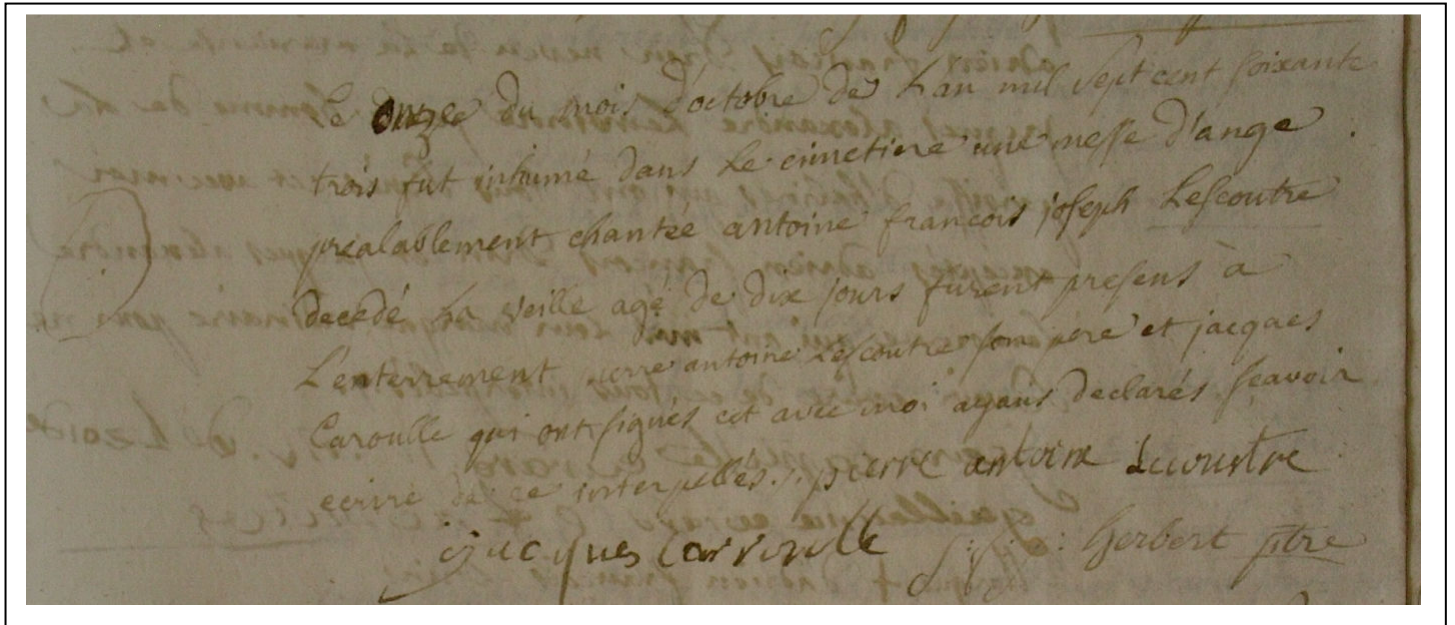 Le onze du mois d'octobre de L'an mil sept cent soixante
trois fut inhumé dans Le cimetiere une messe d'ange
prealablement chantée antoine francois joseph Lescoutre
decedé La veille agé de dix jours furent presens à
L'enterrement pierre antoine Lescoutre son pere et jacques
Caroulle qui ont signés cet avec moi ayans declarés sçavoir
ecrire de ce interpellés. pierre antoine Lecoustre
jacques Carroulle Herbert ptre